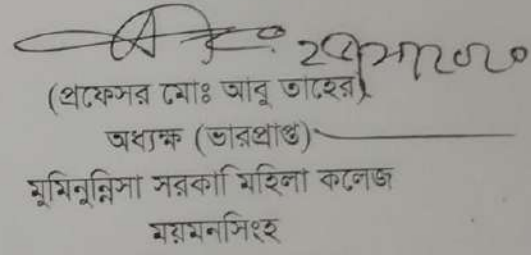 (প্রফেসর মোঃ আবু তাহের)
অধ্যক্ষ (ভারপ্রাপ্ত)
মুমিনুন্নিসা সরকারি মহিলা কলেজ
ময়মনসিংহ